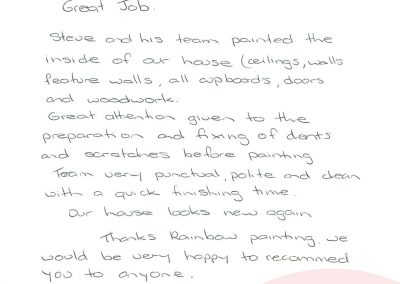 Great Job.
Steve and his team painted the
inside of our house (ceilings, walls
feature walls, all cupboards, doors
and woodwork.
Great attention given to the
preparation and fixing of dents
and scratches before painting
Team very punctual, polite and clean
with a quick finishing time.
Our house looks new again
Thanks Rainbow painting, we
would be very happy to recommed
you to anyone.